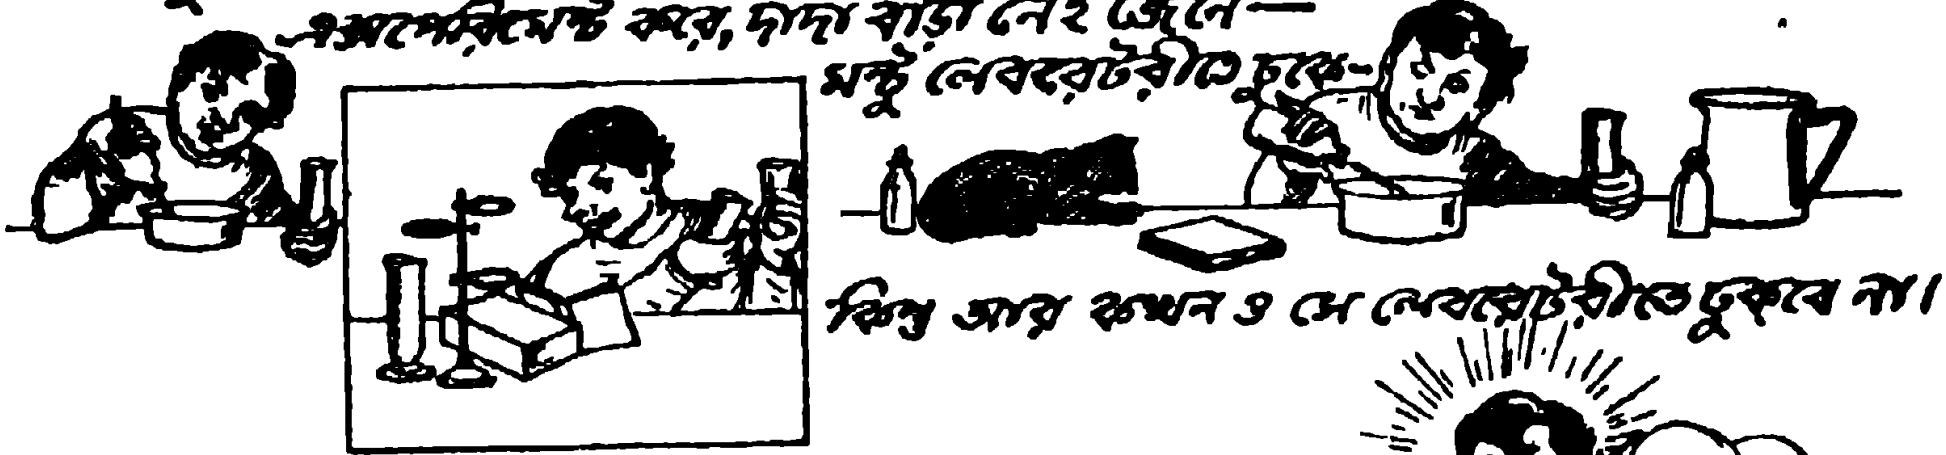 এক্সপেরিমেন্ট করে, দাদা বাড়ী নেই জেনে—
মন্টু লেবরেটরীতে ঢুকে-
কিন্তু আর কখনও সে লেবরেটরীতে ঢুকবে না।